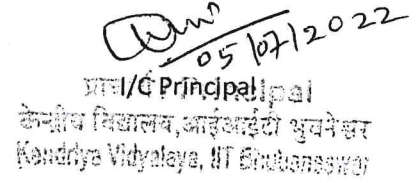 05/07/2022
I/C Principal
केन्द्रीय विद्यालय,आईआईटी भुवनेश्वर
Kendriya Vidyalaya, IIT Bhubaneswar